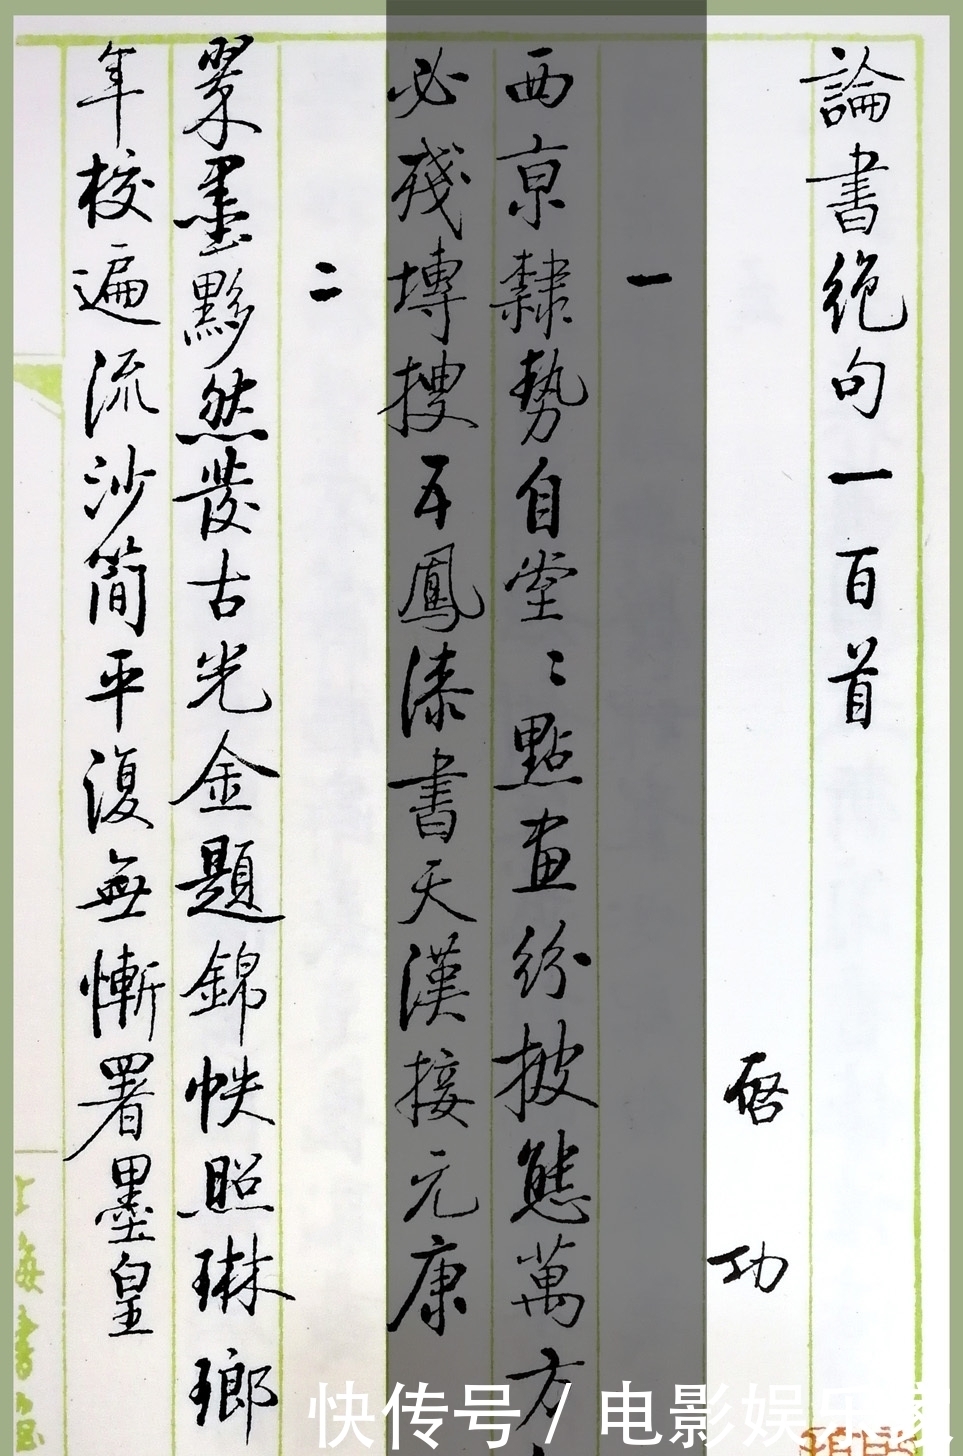 論書絶句一百首
啓功
一
西京隸勢自堂〻點畫紛披態萬方
必殘塼搜五鳳漆書天漢接元康
二
翠墨黟然發古光金題錦帙照琳瑯
年校遍流沙簡平復無慚署墨皇
快传号 / 电影娱乐